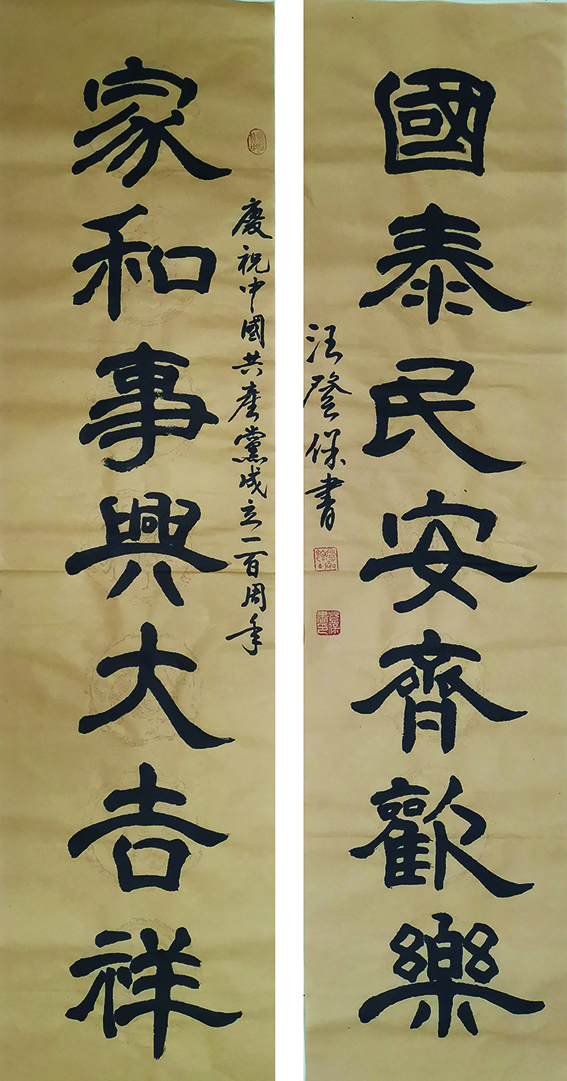 國泰民安齊歡樂
汪登保書
慶祝中國共産黨成立一百周年
家和事興大吉祥